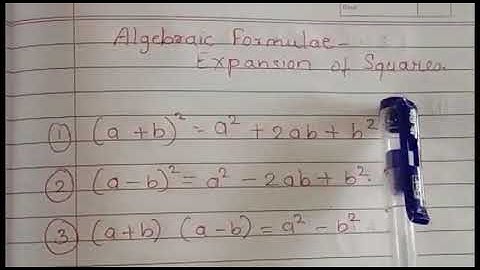 Algebraic Formulae-
Expansion of Squares.
① (a + b)² = a² + 2ab + b²
② (a - b)² = a² - 2ab + b².
③ (a + b) (a - b) = a² - b².